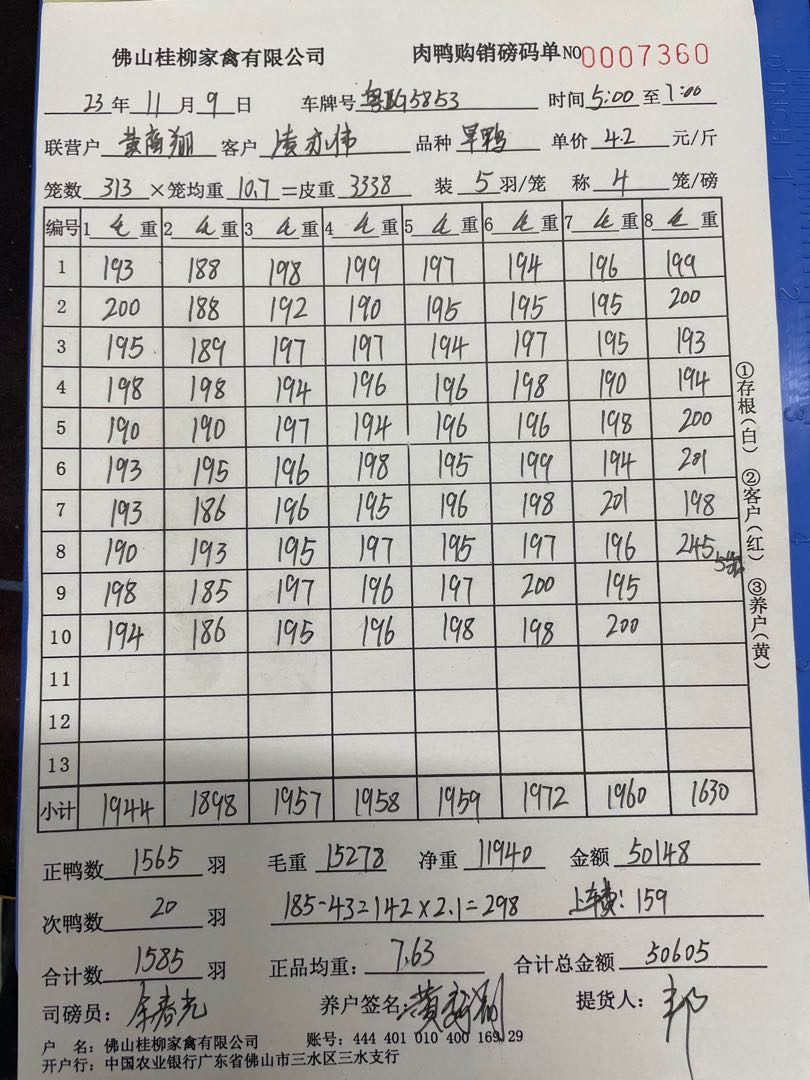 佛山桂柳家禽有限公司 肉鸭购销磅码单 NO 0007360
23年11月9日 车牌号 粤 G5853 时间 5:00 至 7:00
联营户 黄 翔 客户 凌亦伟 品种 旱鸭 单价 4.2 元/斤
笼数 313 ×笼均重 10.7 =皮重 3338 装 5 羽/笼 称 4 笼/磅
编号 1 毛 重 2 毛 重 3 毛 重 4 毛 重 5 毛 重 6 毛 重 7 毛 重 8 毛 重
1 193 188 198 199 197 194 196 199
2 200 188 192 190 195 195 195 200
3 195 189 197 197 194 197 195 193
4 198 198 194 196 196 198 190 194
5 190 190 197 194 196 196 198 200
6 193 195 196 198 195 199 194 201
7 193 186 196 195 196 198 201 198
8 190 193 195 197 195 197 196 245
9 198 185 197 196 197 200 195
10 194 186 195 196 198 198 200
11
12
13
小计 1944 1898 1957 1958 1959 1972 1960 1630
①存根(白) ②客户(红) ③养户(黄)
正鸭数 1565 羽 毛重 15278 净重 11940 金额 50148
次鸭数 20 羽 185-43=142×2.1=298 上车费:159
合计数 1585 羽 正品均重: 7.63 合计总金额 50605
司磅员: 余春光 养户签名: 黄 翔 提货人: 邦
户 名:佛山桂柳家禽有限公司 账号:444 401 010 400 169 29
开户行:中国农业银行广东省佛山市三水区三水支行